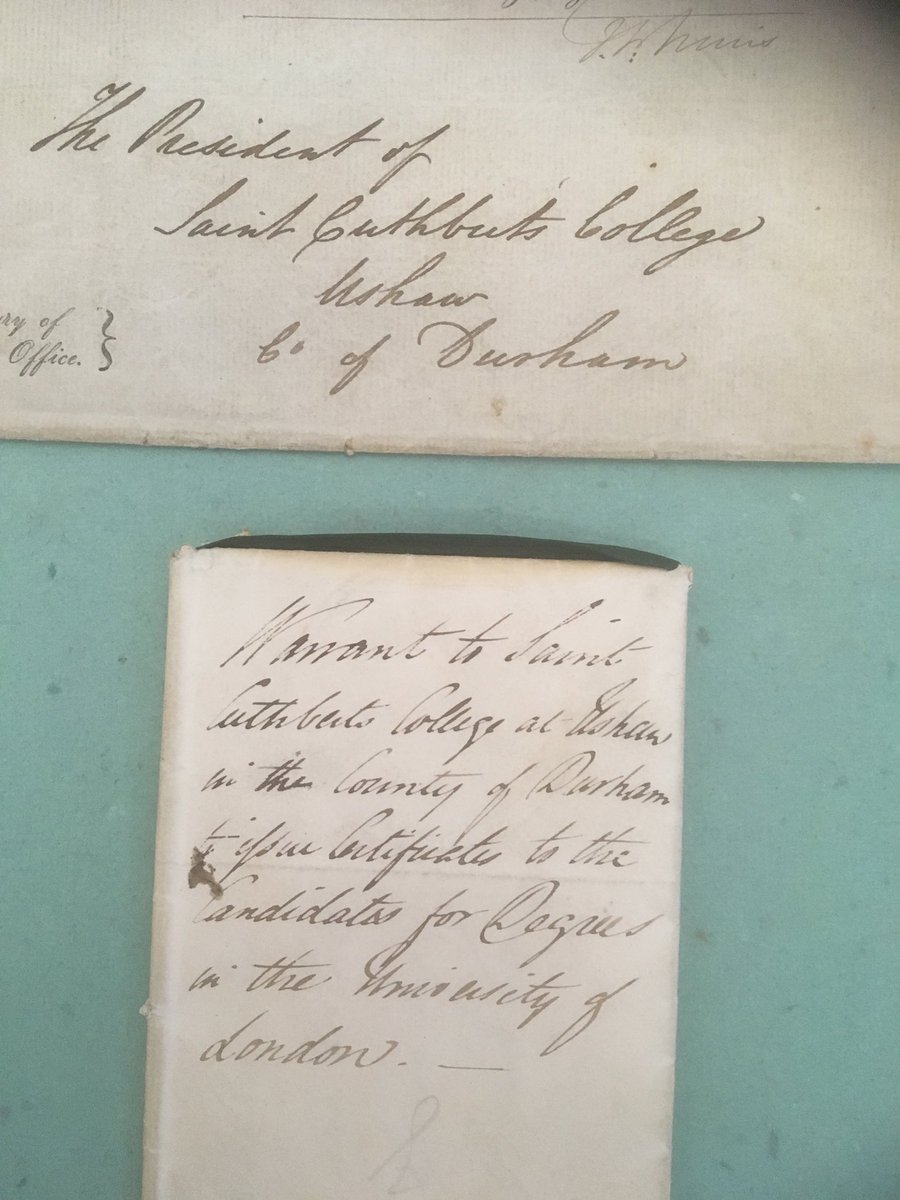 The President of
Saint Cuthbert's College
Ushaw
Co of Durham
ry of
Office.
Warrant to Saint
Cuthberts College at Ushaw
in the County of Durham
to issue Certificates to the
Candidates for Degrees
in the University of
London. —